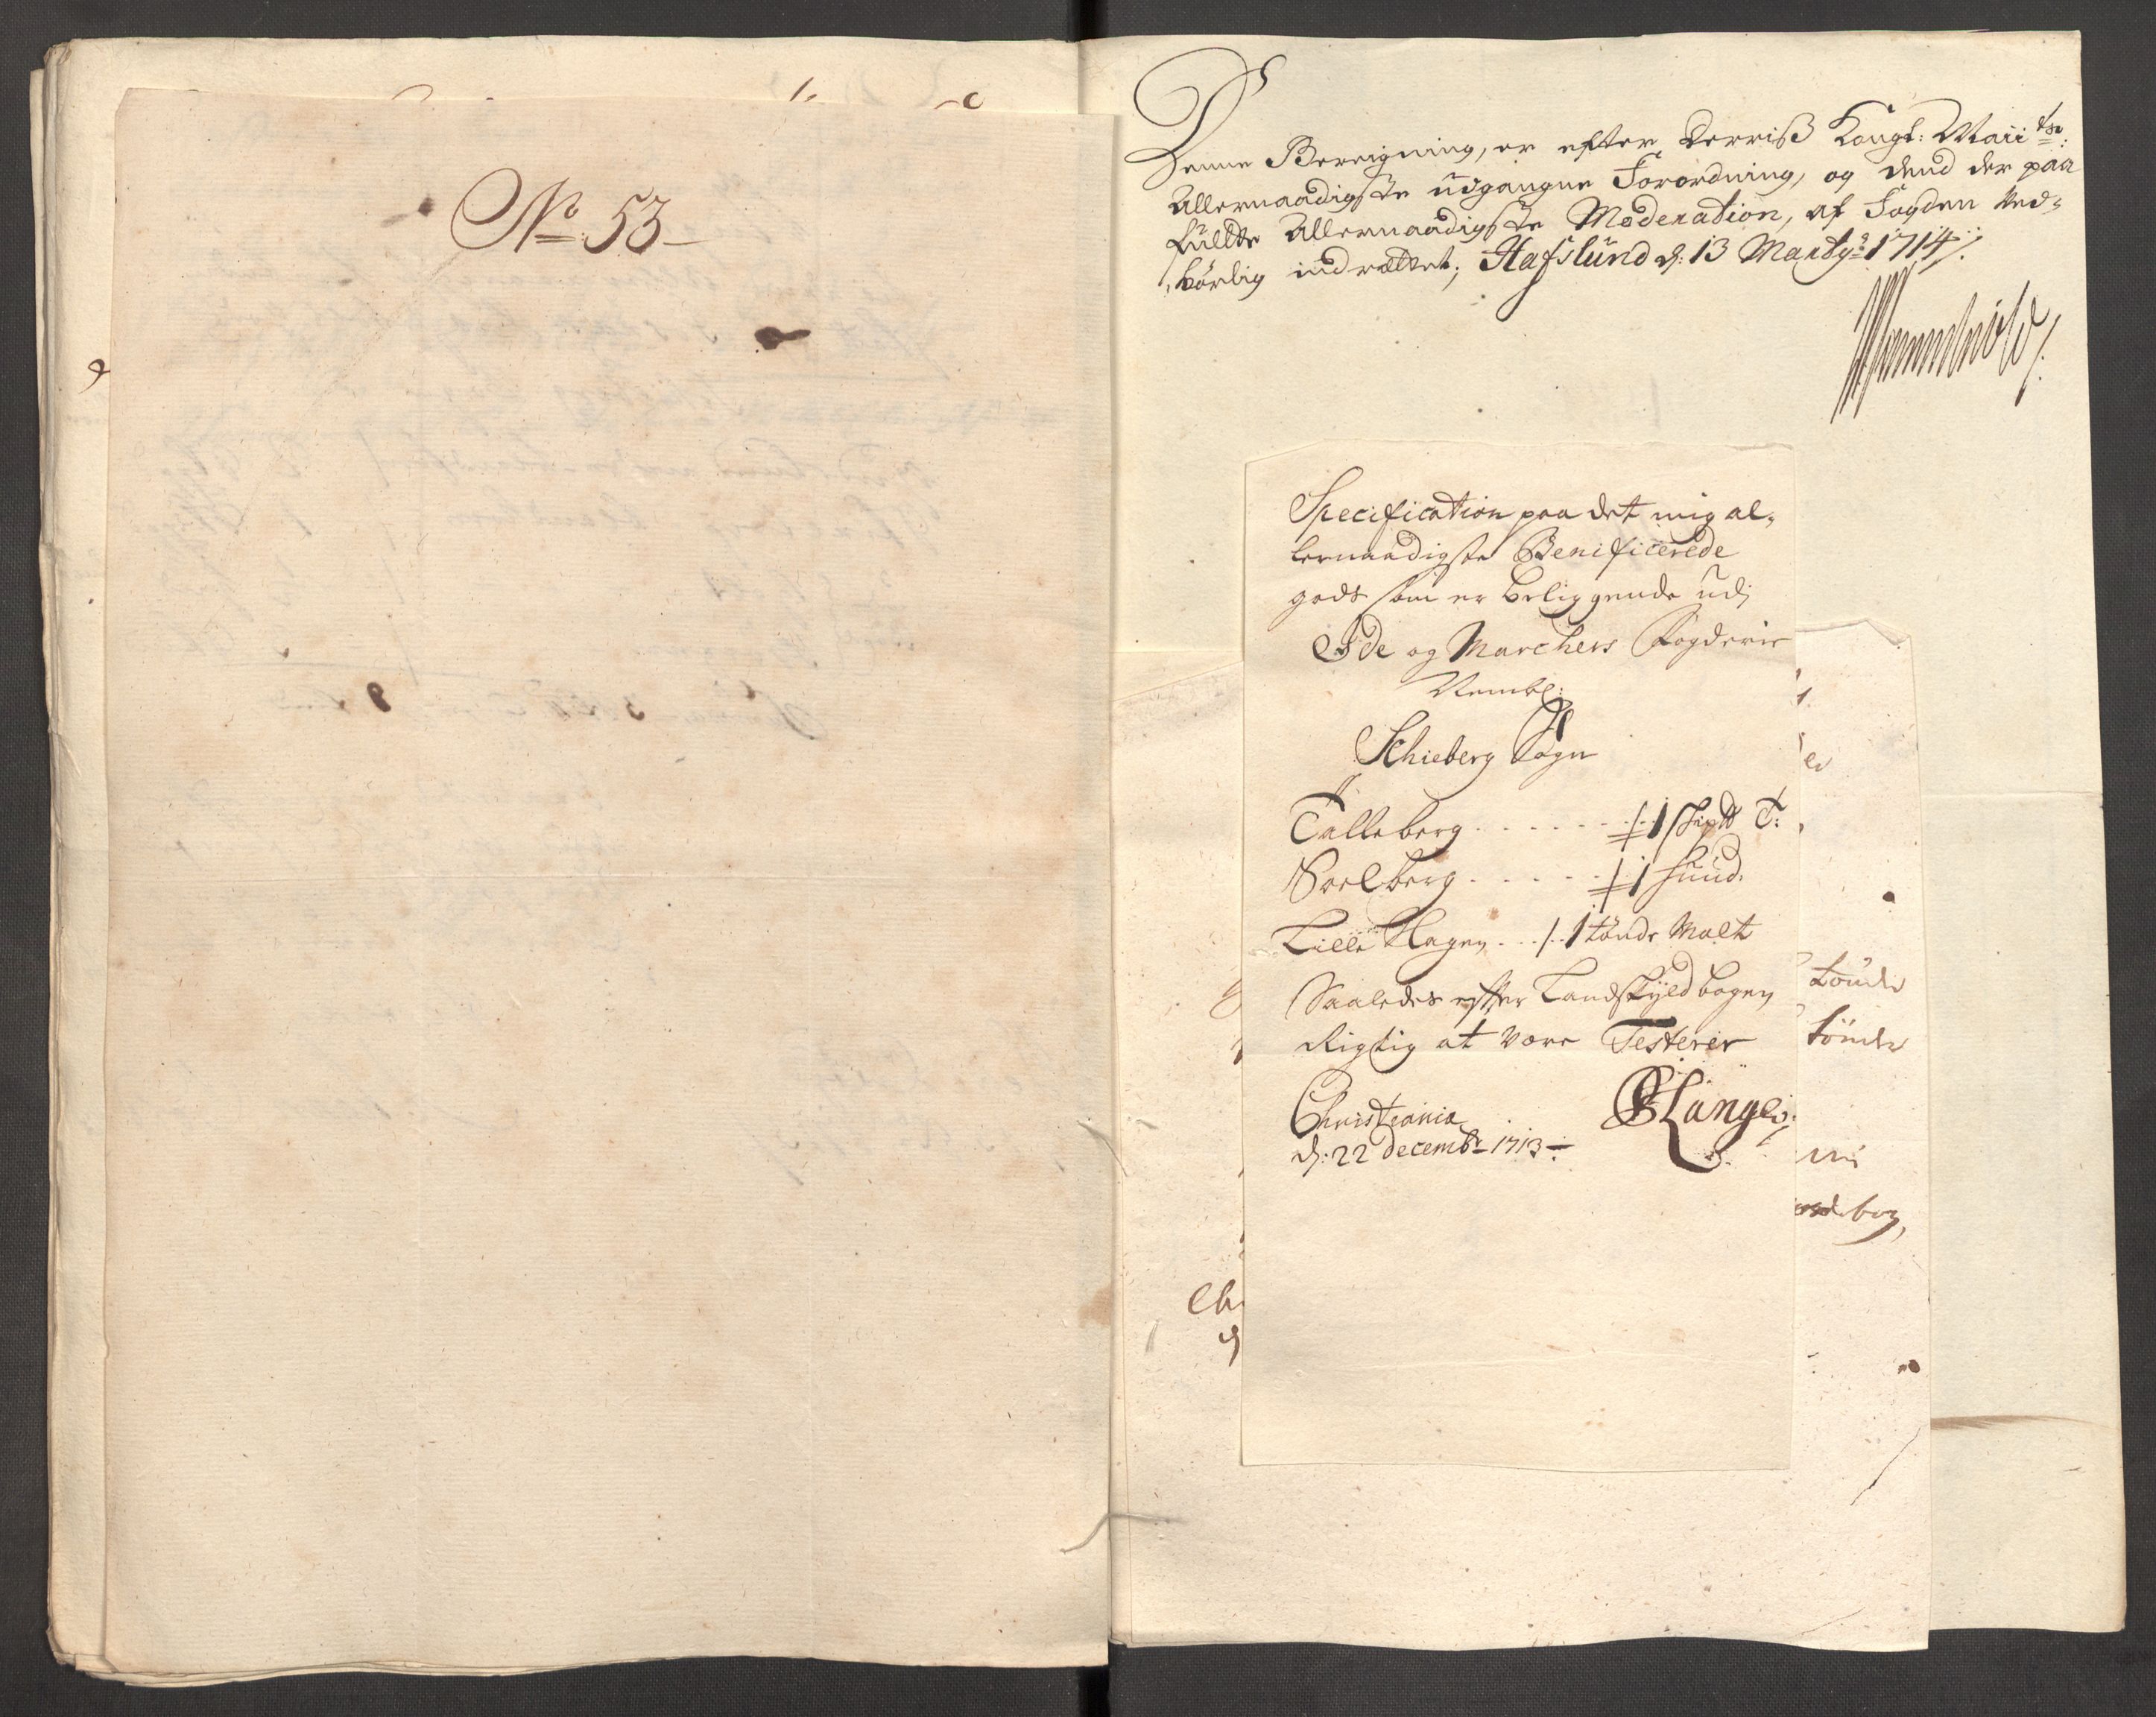 No 53
Denne Beregning, er efter Derriß Kongl: Maii tts:
Allernaadigste udgangne Forordning, og dend der paa
fulte Allernaadigste Moderation, af Fogden Ved-
børlig indrettet; Hafslund d: 13 Marty 1714
Specification paa det mig al-
lernaadigste Benificerede
gods som er beliggende udj
Ide og Marchers Fogderie
Nembl:
Schieberg Sogn
Talleberg . . . . . . 1 skipd T:
Soelberg . . . . . 1 huud.
Lille Hagen . . . 1 tønde Malt
Saaledes efter Landskyld bogen
Rigtig at være Testerer
Christiania
d: 22 decembr 1713
Lange
tønde
tønde